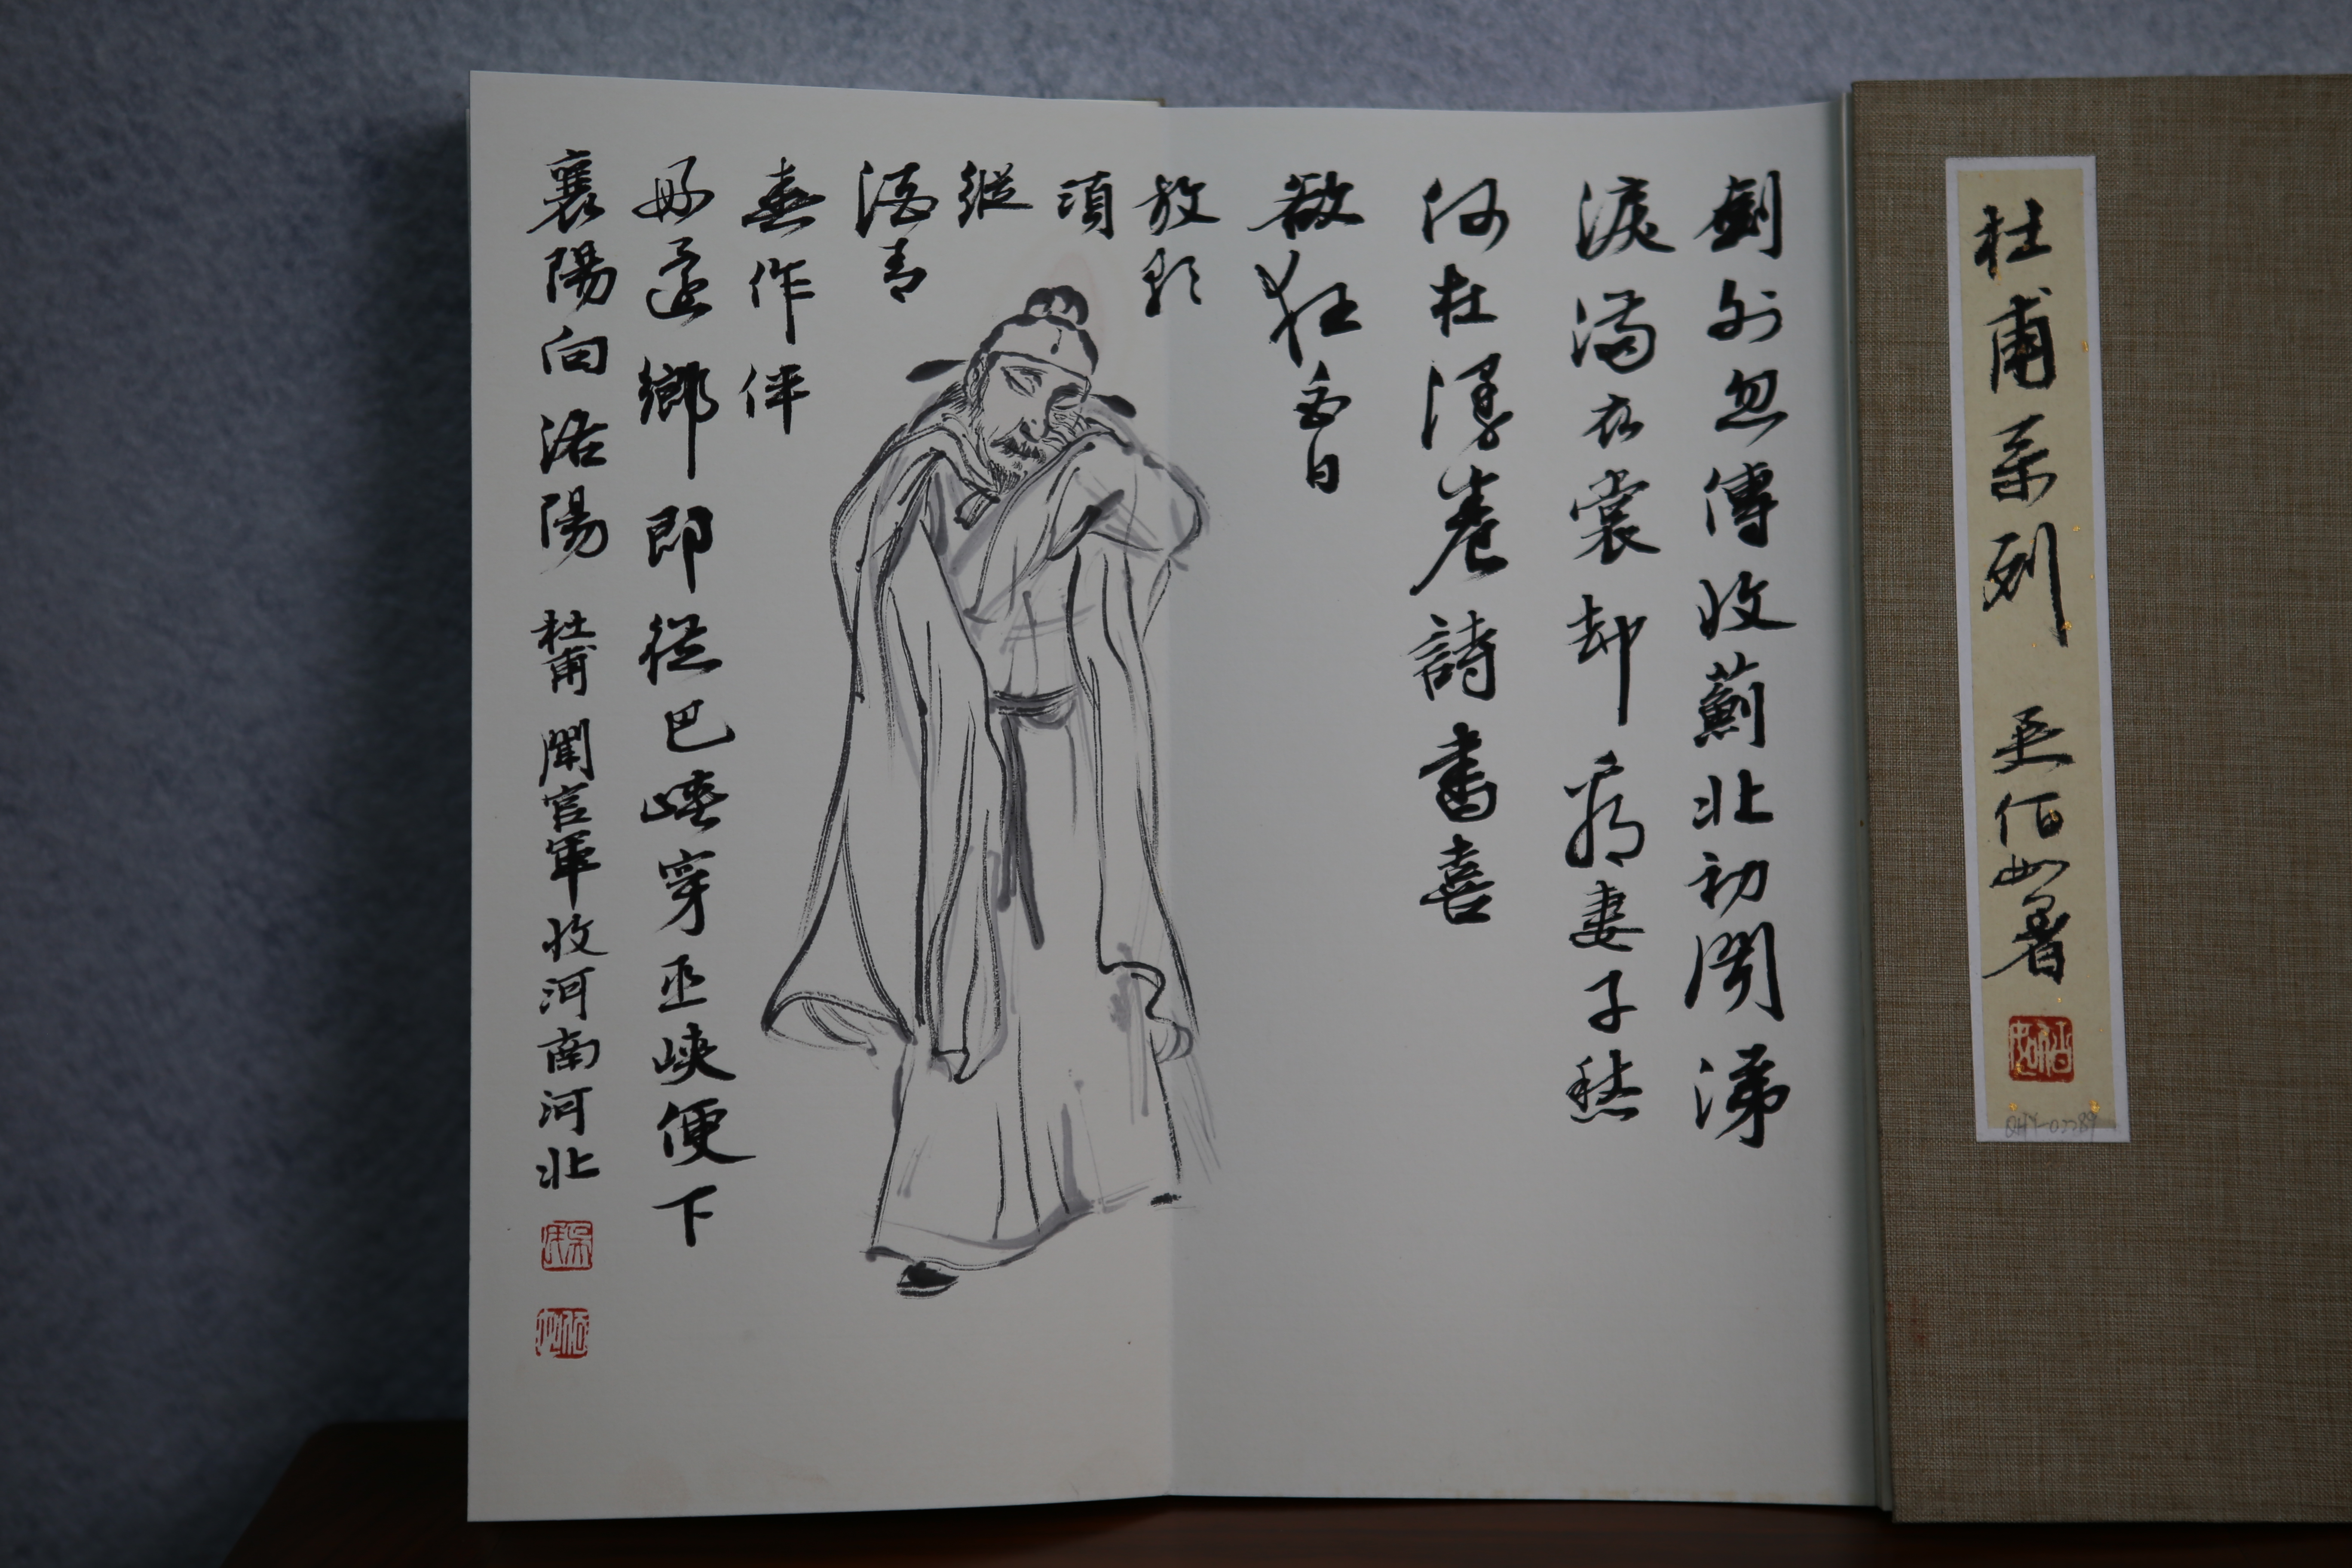 杜甫系列 佰如署
劍外忽傳收薊北初聞涕
淚滿衣裳却看妻子愁
何在漫卷詩書喜
欲狂白日
放歌
須
縱
酒青
春作伴
好還鄉即從巴峽穿巫峽便下
襄陽向洛陽 杜甫 聞官軍收河南河北